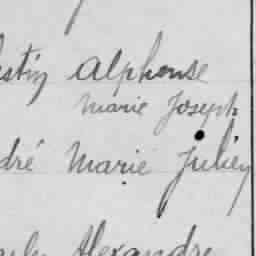 estin Alphonse
Marie Joseph
dré Marie Julien
Alexandre